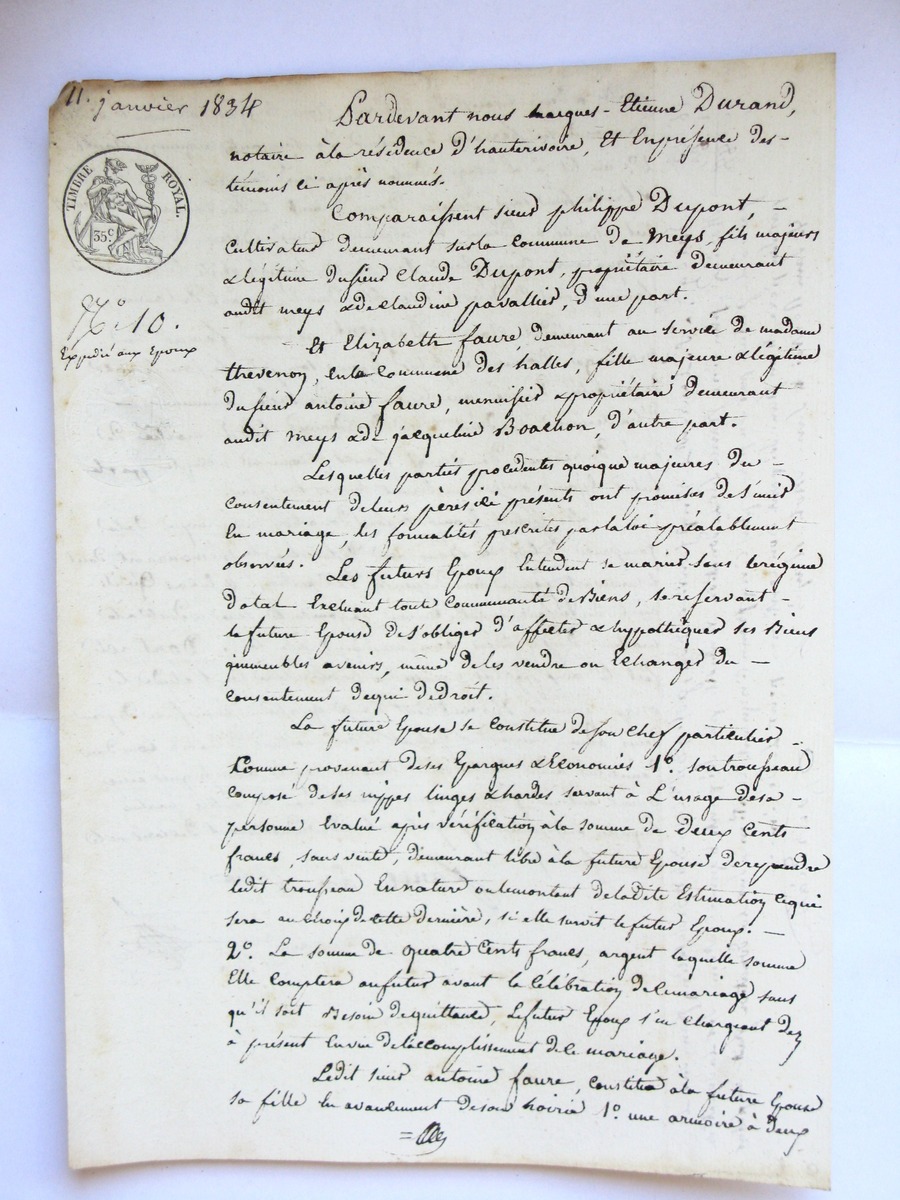 11. janvier 1834
Pardevant nous marques-Etienne Durand,
notaire à la résidence d'hauterivoire, Et Enprésence des-
témoins ci après nommés.
TIMBRE ROYAL.
35 c.
Comparaissent sieur philippe Dupont, -
Cultivateur demeurant sur la commune de Meys, fils majeur
& légitime du sieur Claude Dupont, propriétaire demeurant
audit meys & de Claudine pavallier, d'une part.
N° 10.
Expédié aux Epoux
Et Elizabeth faure, demeurant au service de madame
thevenon, En la Commune des halles, fille majeure & légitime
du sieur antoine faure, menuisier & propriétaire demeurant
audit meys & de jacqueline Boachon, d'autre part.
Lesquelles parties procédentes quoique majeures du -
consentement de leurs pères ici présents ont promises de S'unir
En mariage, les formalités prescrites par la loi préalablement
observées.
Les futurs Epoux Entendent se marier sous le régime
Dotal Excluant toute Communauté de Biens, se reservant -
la future Epouse de S'obliger d'affecter & hypothéquer ses Biens
immeubles avenirs, même de les vendre ou Echanger du -
consentement de qui de droit.
La future Epouse se Constitue de son Chef particulier -
Comme provenant de ses Epargnes & Economies 1°. son trousseau
Composé de ses nippes linges & hardes servant à L'usage de sa -
personne Evalué après vérification à la somme de Deux Cents
francs, sans vente, demeurant libre à la future Epouse de reprendre
ledit trousseau En nature ou le montant de la dite Estimation ce qui
sera au Choix de cette dernière, si elle survit le futur Epoux. -
2°. La somme de quatre Cents francs, argent laquelle somme
Elle Comptera au futur avant la Célébration de le mariage sans
qu'il soit Besoin de quittance, Le futur Epoux s'en chargeant dez
à présent En vue de l'accomplissement de le mariage.
Ledit sieur antoine faure, Constitue à la future Epouse
sa fille En avancement de son hoirie 1° une armoire à Deux